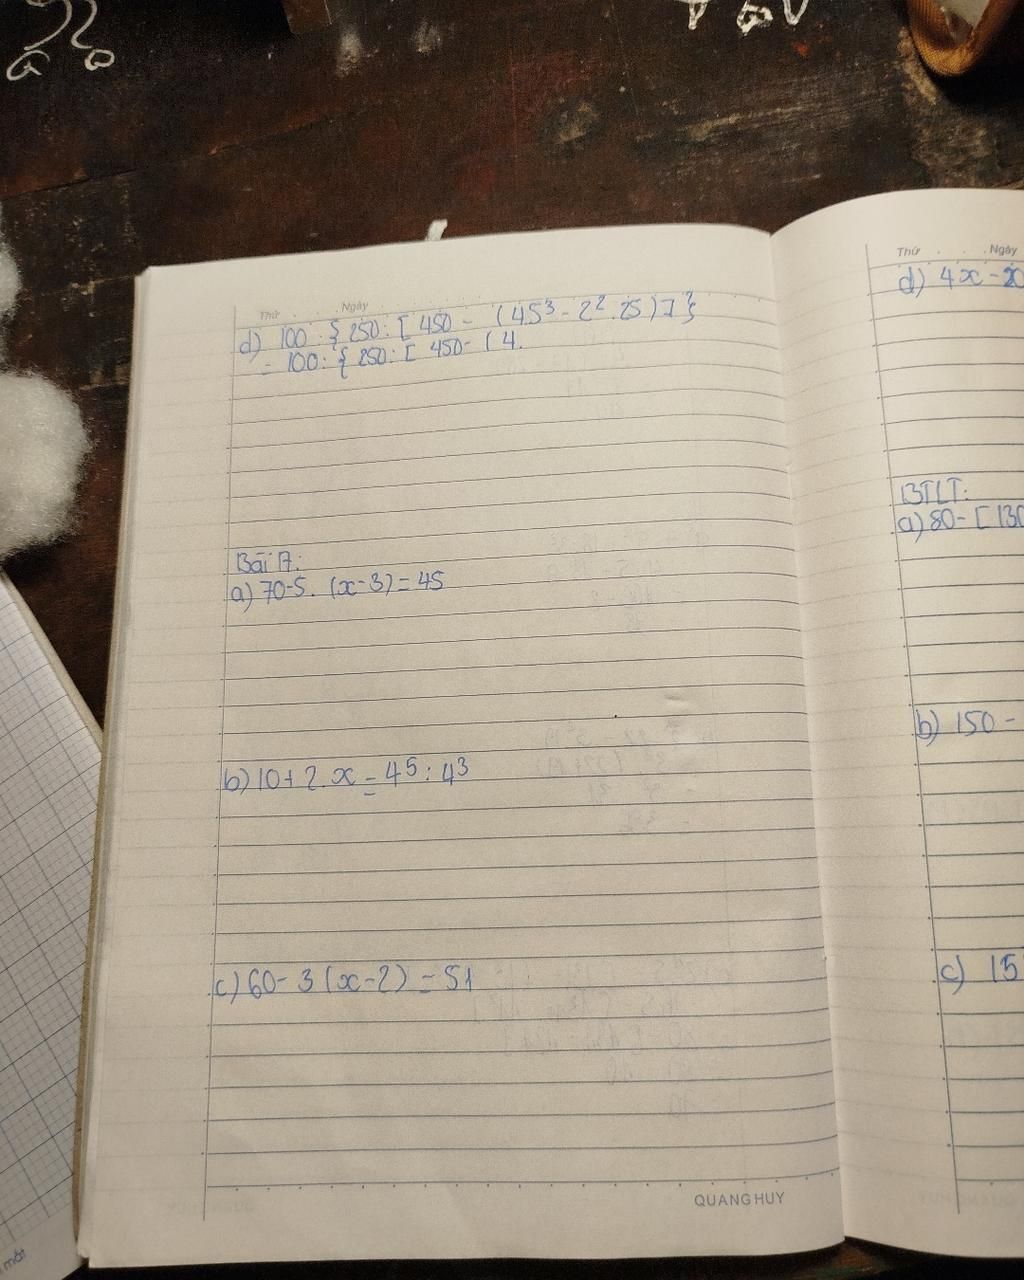 Thứ Ngày
d) 100 : { 250 : [ 450 - ( 4 5³ - 2² . 25 ) ] }
= 100 : { 250 : [ 450 - ( 4 .
Bài 17:
a) 70 - 5 . (x - 3) = 45
b) 10 + 2 . x = 4⁵ : 4³
c) 60 - 3 (x - 2) = 51
QUANG HUY
Thứ Ngày
d) 4x - 20
BTLT:
a) 80 - [ 130
b) 150 -
c) 15